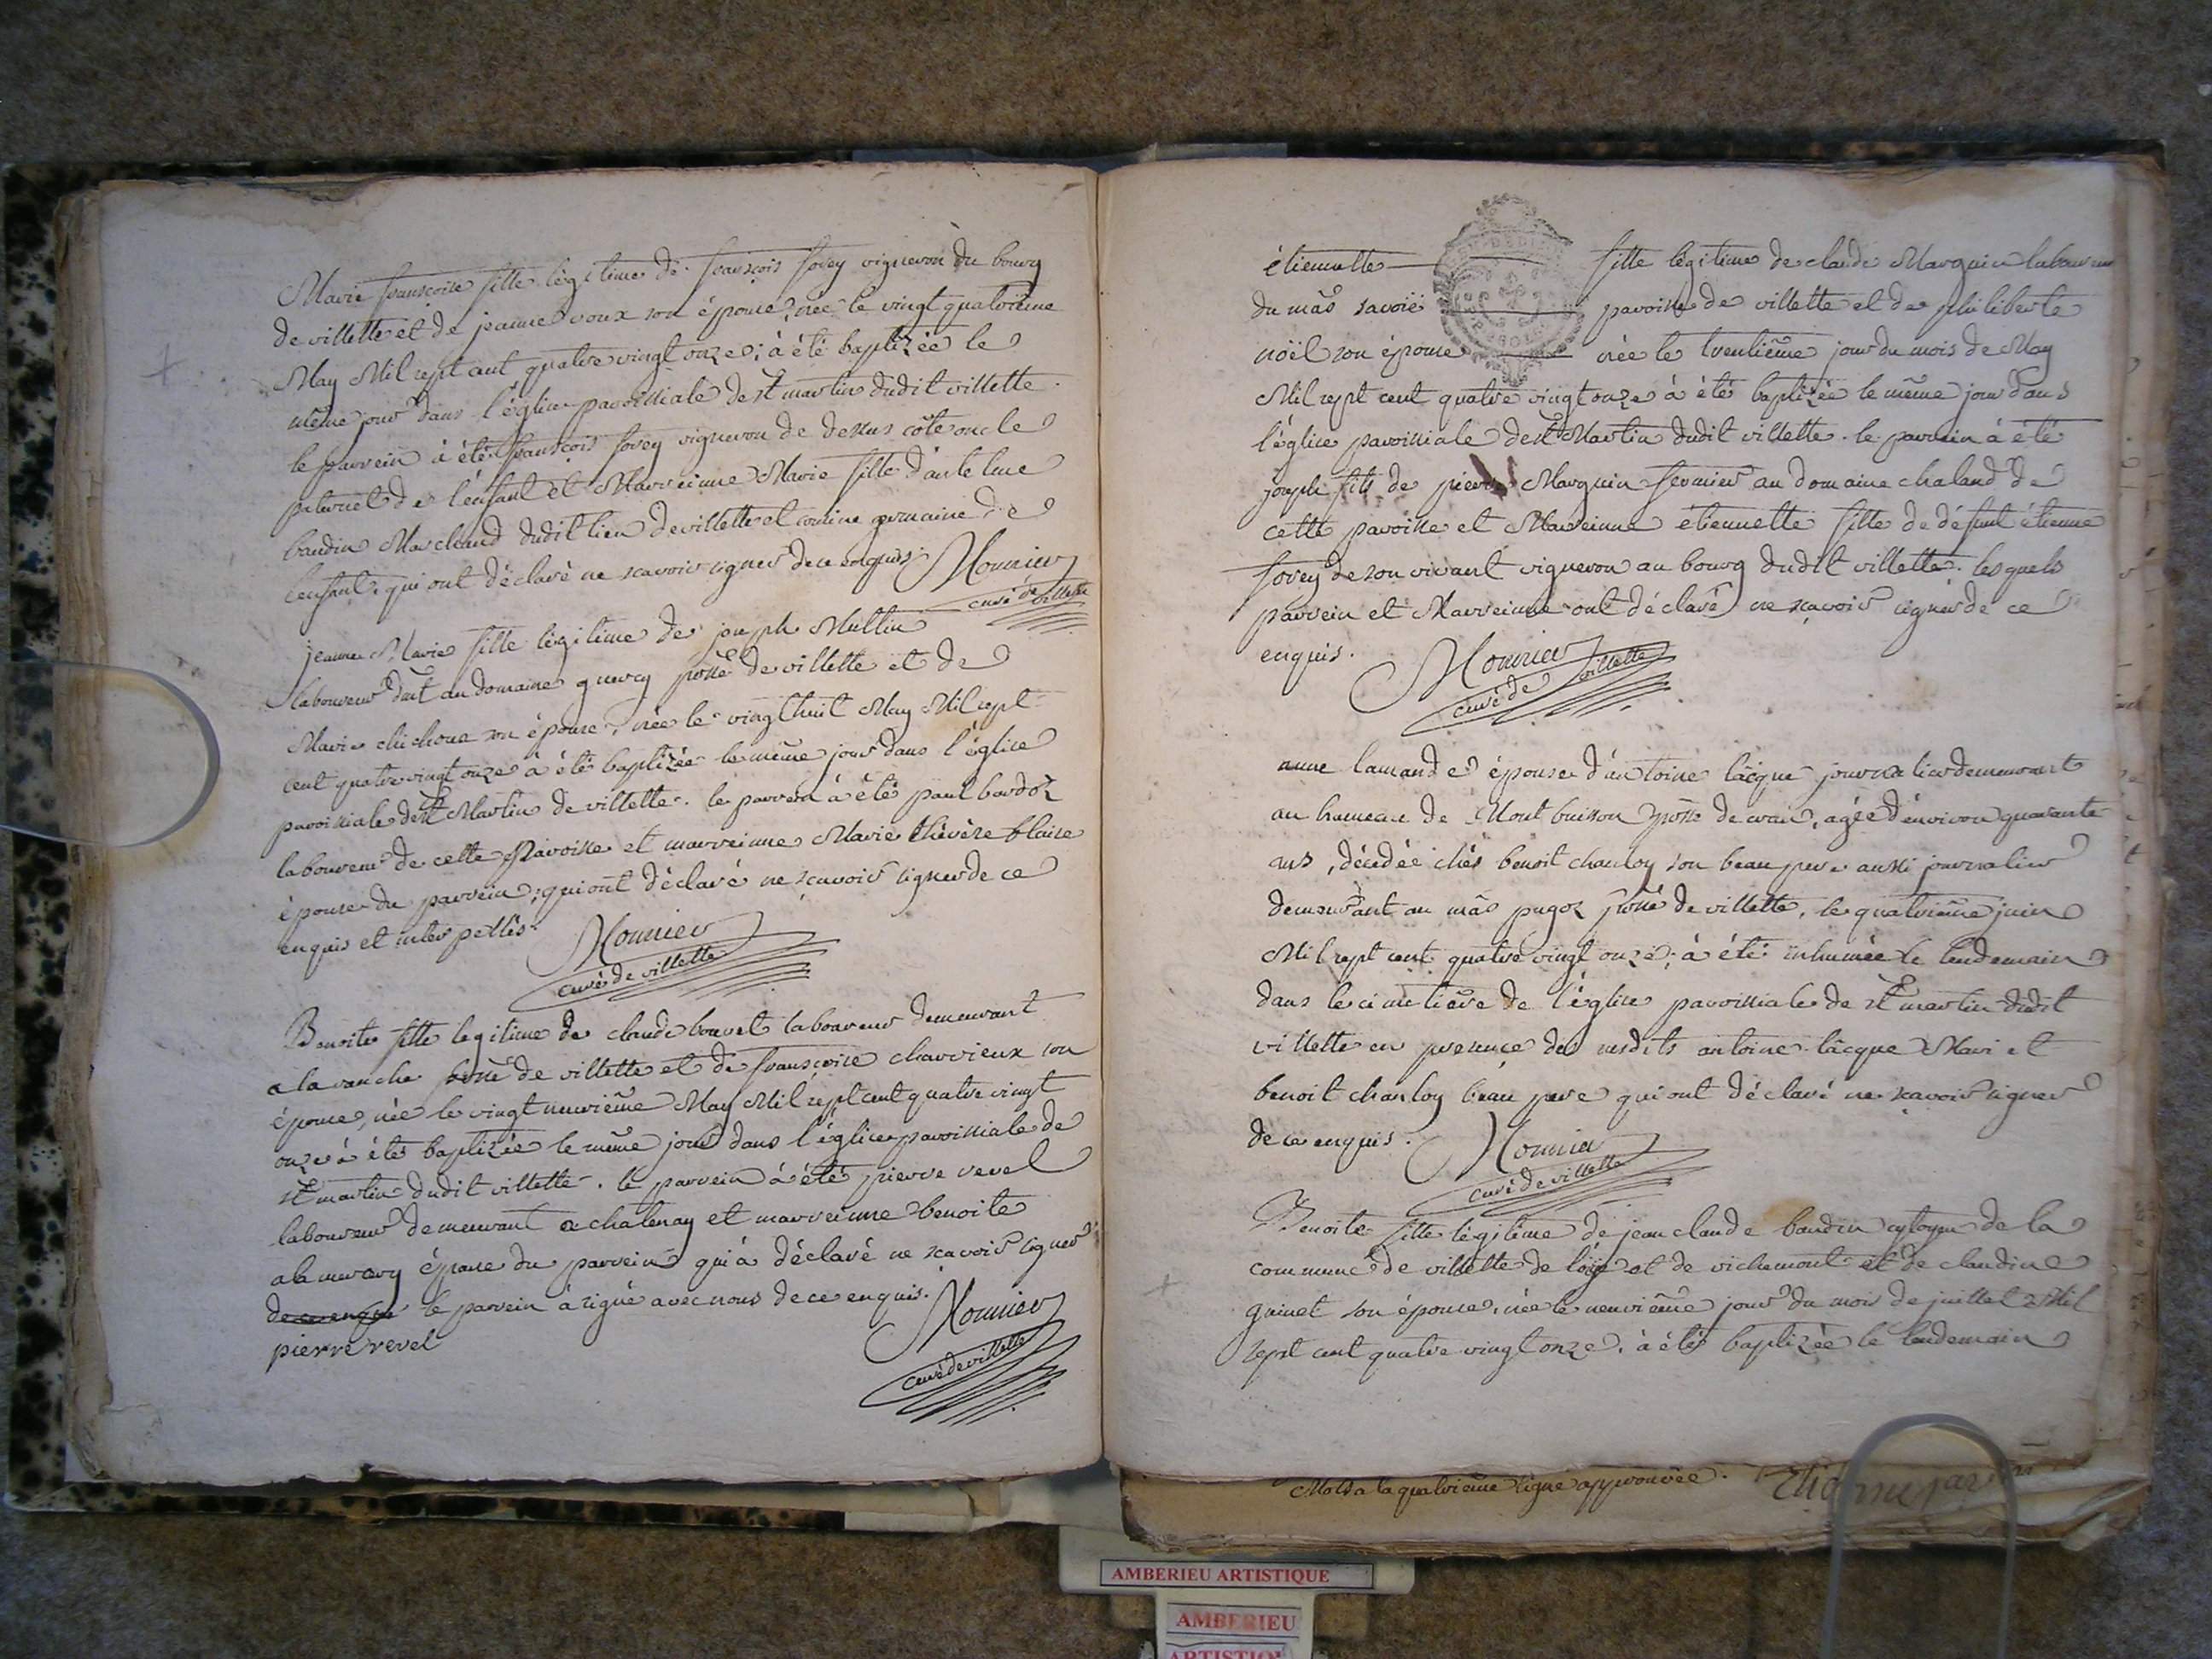 Marie françoise fille légitime de françois forey vigneron du bourg
de villette et de jeanne roux son épouse, née le vingt quatrième
May Mil sept cent quatre vingt onze; à été baptizée le
même jour dans l'église paroissiale de st martin dudit villette.
le parrein à été françois forey vigneron de dessus côte oncle
paternel de l'enfant et Marreinne Marie fille d'anthelme
baudin Marchand dudit lieu de villette et cousine germaine de
l'enfant, qui ont déclaré ne scavoir signer de ce enquis. Monnier
curé de villette
jeanne Marie fille légitime de joseph Multin
laboureur dmt au domaine quercy psse de villette et de
Marie chichoux son épouse, née le vingt huit May Mil sept
cent quatre vingt onze à été baptizée le même jour dans l'église
paroissiale de st Martin de villette. le parrein à été paul bardoz
laboureur de cette Paroisse et marreinne Marie thérèze blaise
épouse du parrein; qui ont déclaré ne scavoir signer de ce
enquis et interpellés. Monnier
curé de villette
Benoite fille legitime de claude bouvet laboureur demeurant
a la ranche psse de villette et de françoise charvieux son
épouse, née le vingt neuvième May Mil sept cent quatre vingt
onze à été baptizée le même jour dans l'église paroissiale de
st martin dudit villette. le parrein à été pierre revel
laboureur demeurant a chatenay et marreinne benoite
alamercery épouse du parrein qui à déclaré ne scavoir signer
de ce enquis le parrein à signé avec nous de ce enquis. Monnier
pierre revel
curé de villette
étiennette fille légitime de claude Marguin laboureur
du mâs savoie paroisse de villette et de philiberte
noël son épouse née le trentième jour du mois de May
Mil sept cent quatre vingt onze à été baptizée le même jour dans
l'église paroissiale de st Martin dudit villette. le parrein à été
joseph fils de pierre Marguin fermier au domaine chaland de
cette paroisse et Marreinne étiennette fille de défunt étienne
forey de son vivant vigneron au bourg dudit villette. lesquels
parrein et Marreinne ont déclaré ne scavoir signer de ce
enquis. Monnier
curé de villette
anne lamande épouse d'antoine lâcque journalier demeurant
au hameau de Mont buisson psse de cran, agée d'environ quarante
ans, décédée chés benoit chanloy son beau pere aussi journalier
demeurant au mâs pugoz psse de villette, le quatrième juin
Mil sept cent quatre vingt onze; à été inhumée le lendemain
dans le cimetière de l'église paroissiale de st martin dudit
villette en presence des susdits antoine lâcque Mari et
benoit chanloy beau pere qui ont déclaré ne scavoir signer
de ce enquis. Monnier
curé de villette
Benoite fille légitime de jean claude baudin cytoyen de la
commune de villette de loÿe et de richemont et de claudine
guinet son épouse, née le neuvième jour du mois de juillet Mil
sept cent quatre vingt onze, à été baptizée le lendemain
Mots a la quatrième ligne approuvée.
AMBERIEU ARTISTIQUE
AMBERIEU
ARTISTIQUE